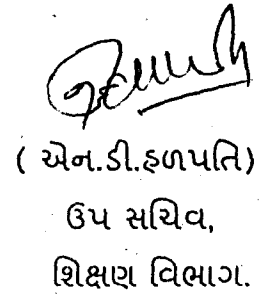 ( એન.ડી.હળપતિ)
ઉપ સચિવ,
શિક્ષણ વિભાગ.